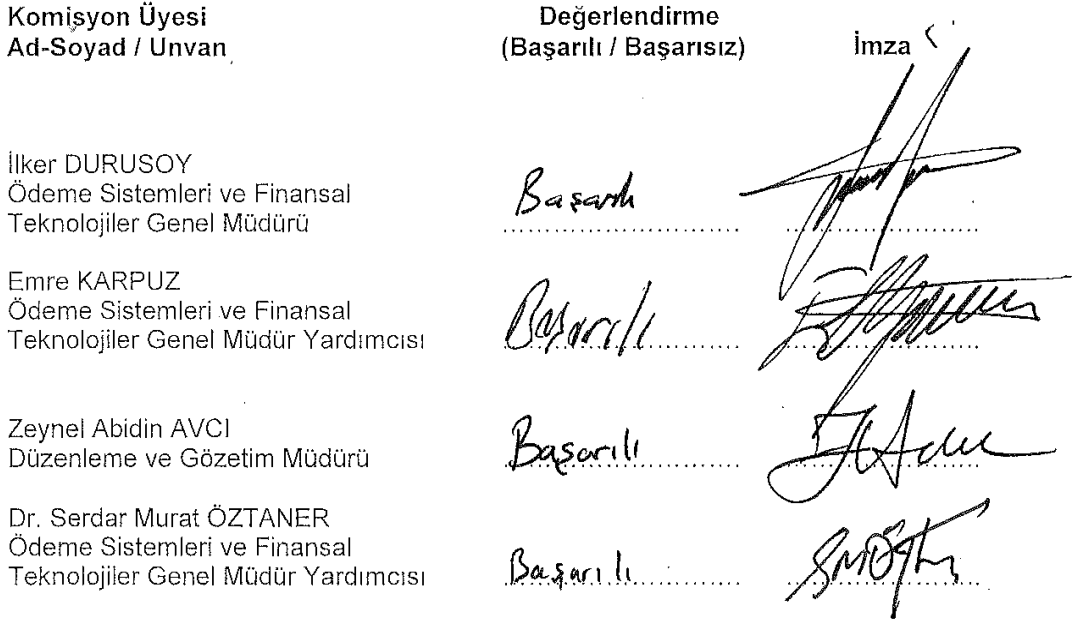 Komisyon Üyesi
Ad-Soyad / Unvan
Değerlendirme
(Başarılı / Başarısız)
İmza
İlker DURUSOY
Ödeme Sistemleri ve Finansal
Teknolojiler Genel Müdürü
Başarılı
Emre KARPUZ
Ödeme Sistemleri ve Finansal
Teknolojiler Genel Müdür Yardımcısı
Başarılı
Zeynel Abidin AVCI
Düzenleme ve Gözetim Müdürü
Başarılı
Dr. Serdar Murat ÖZTANER
Ödeme Sistemleri ve Finansal
Teknolojiler Genel Müdür Yardımcısı
Başarılı